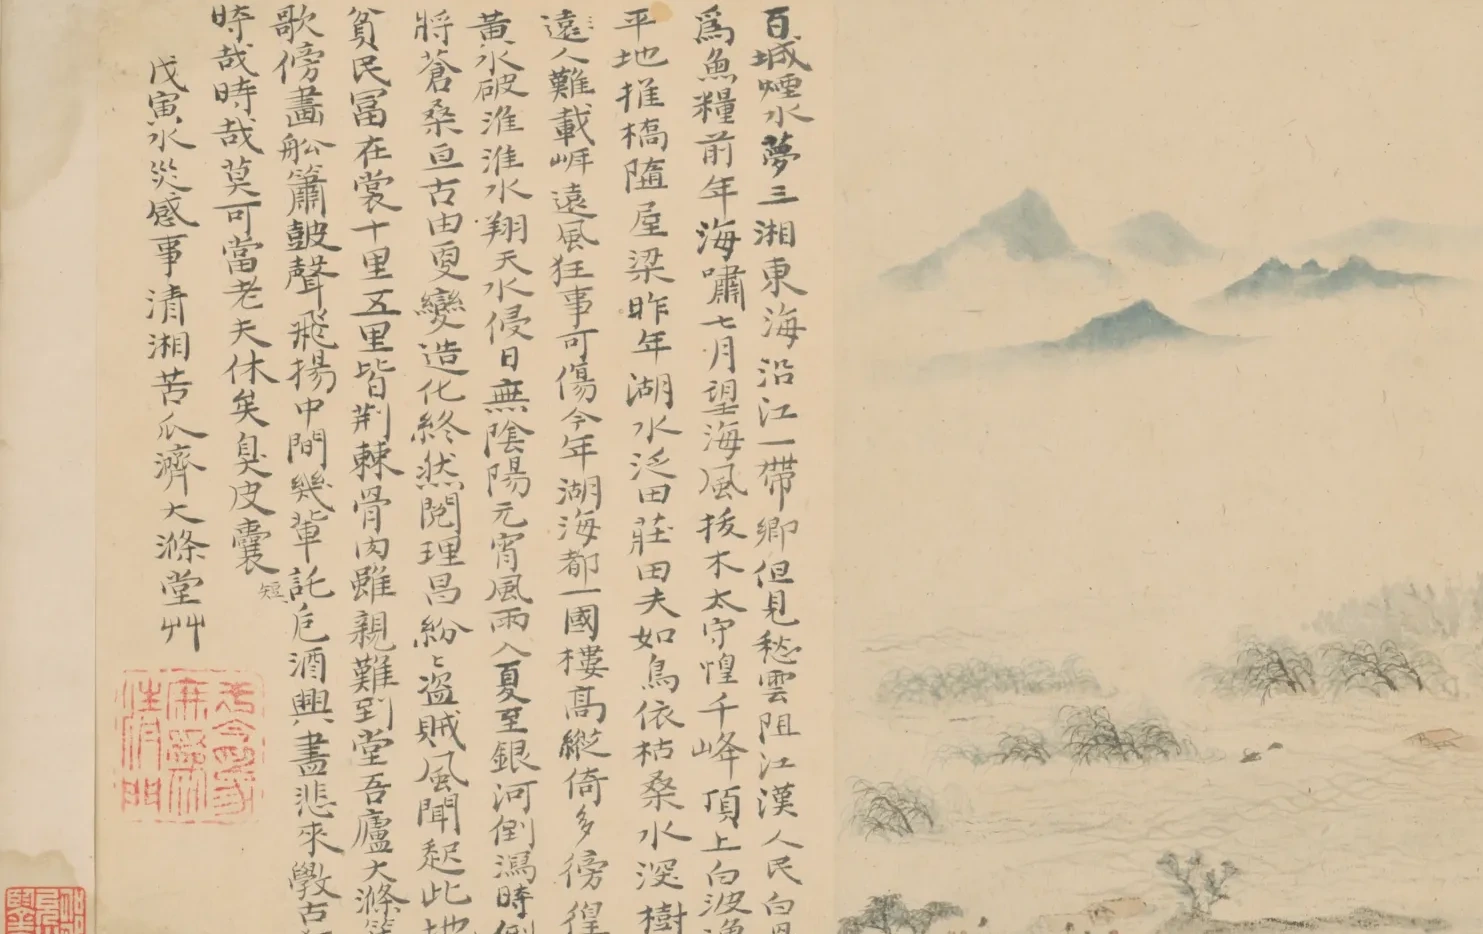 百城煙水夢三湘東海沿江一帶鄉但見愁雲阻江漢人民白日
爲魚糧前年海嘯七月望海風拔木太守惶千峰頂上白波漁
平地推橋隨屋梁昨年湖水泛田莊田夫如鳥依枯桑水深樹
遠遠人難載崕遠風狂事可傷今年湖海都一國樓高縱倚多徬徨
黃水破淮淮水翔天水侵日無陰陽元宵風雨入夏至銀河倒瀉時倒
將蒼桑亘古由更變造化終然閱理昌紛〻盜賊風聞起此地
貧民冨在裳十里五里皆荆棘骨肉雖親難到堂吾廬大滌
歌傍畵舩簫皷聲飛揚中間幾輩託卮酒興盡悲來斆古
時哉時哉莫可當老夫休矣臭皮囊
短
戊寅水災感事清湘苦瓜濟大滌堂艸